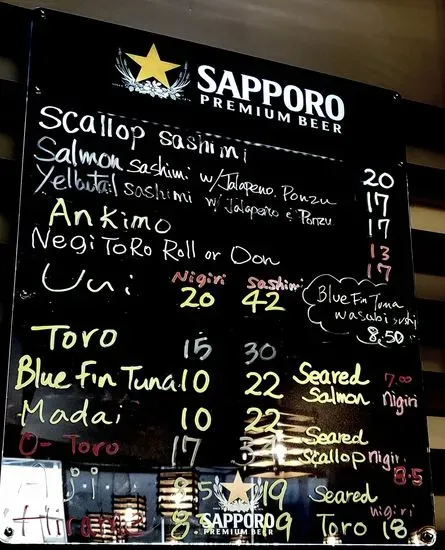 SAPPORO
PREMIUM BEER
Scallop sashimi 20
Salmon sashimi w/Jalapeno Ponzu 17
Yellowtail sashimi w/ Jalapeño & Ponzu 17
Ankimo 13
Negi ToRo Roll or Don 17
Nigiri Sashimi
Uni 20 42
Blue Fin Tuna
wasabi sushi
8.50
Toro 15 30
Blue Fin Tuna 10 22
Seared 7.00
Salmon Nigiri
Madai 10 22
O-Toro 17
Seared
Scallop nigiri
8.5
Aji 8.5 19
Hirame 19
Seared nigiri
Toro 18
SAPPORO
PREMIUM BEER